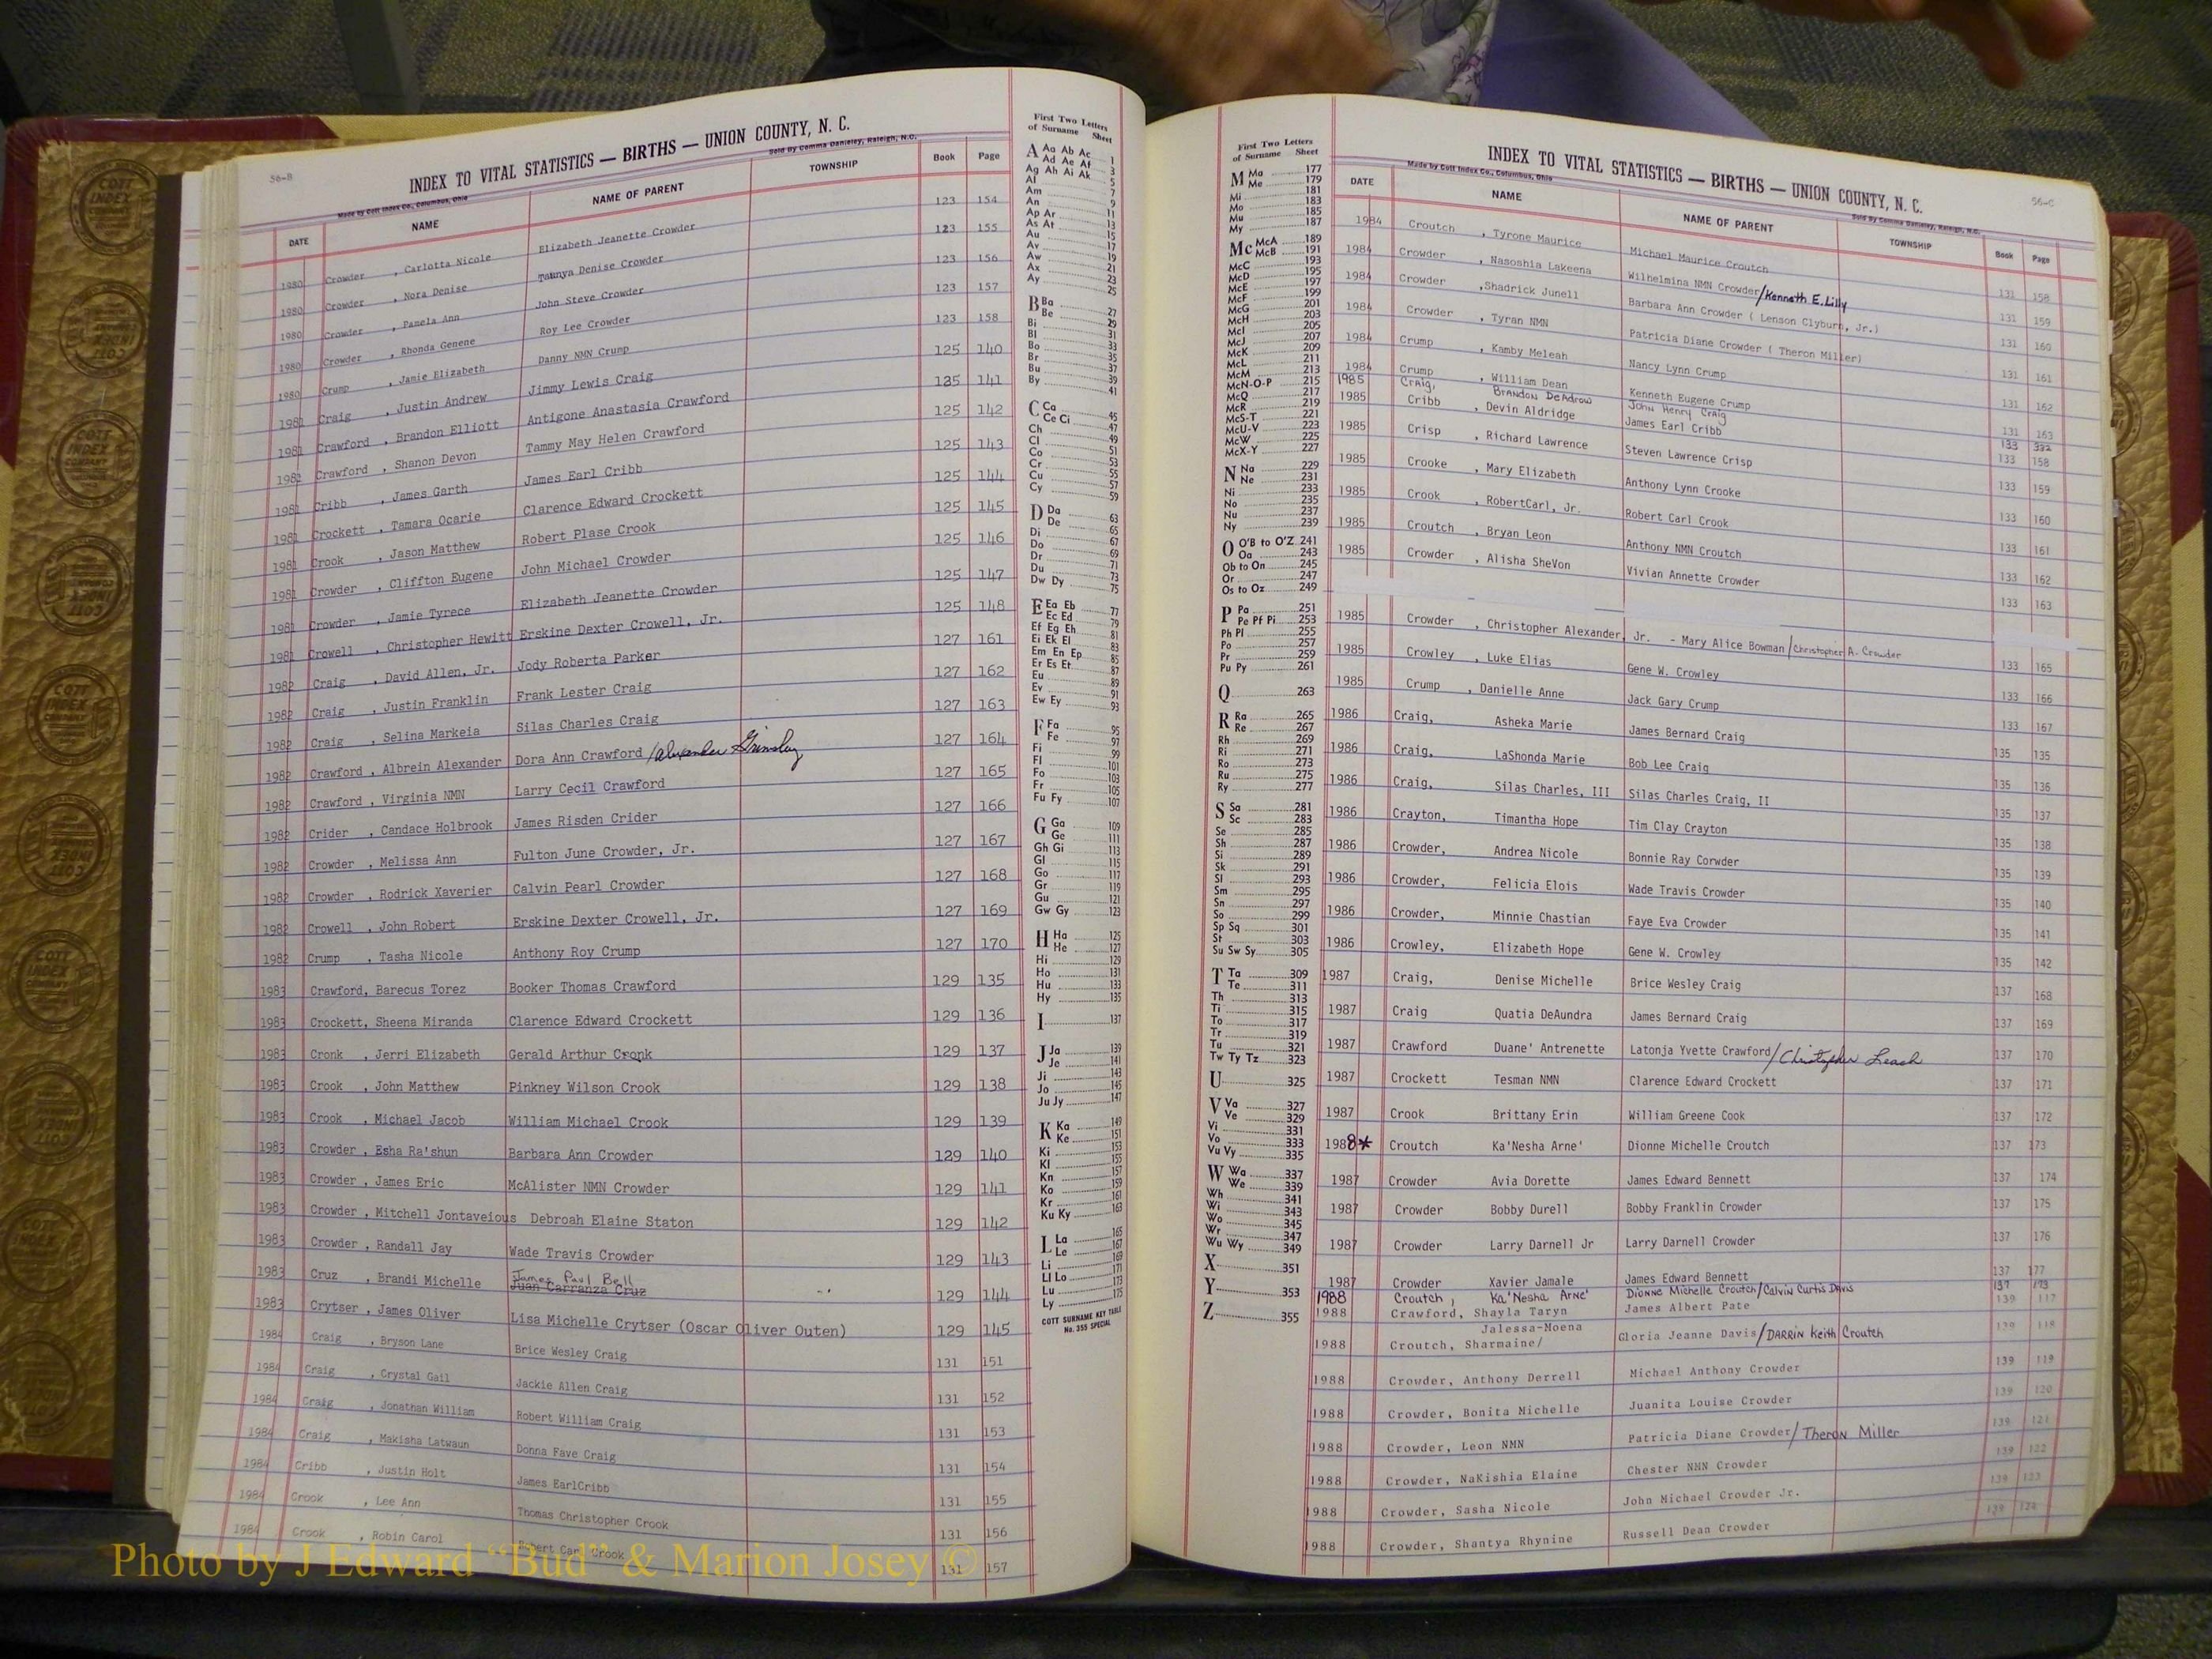 56-B
INDEX TO VITAL STATISTICS — BIRTHS — UNION COUNTY, N. C.
Made by Cott Index Co., Columbus, Ohio
Sold By Comma Danieley, Raleigh, N.C.
DATE NAME NAME OF PARENT TOWNSHIP Book Page
1980 Crowder , Carlotta Nicole Elizabeth Jeanette Crowder 123 154
1980 Crowder , Nora Denise Taunya Denise Crowder 123 155
1980 Crowder , Pamela Ann John Steve Crowder 123 156
1980 Crowder , Rhonda Genene Roy Lee Crowder 123 157
1980 Crump , Jamie Elizabeth Danny NMN Crump 123 158
1981 Craig , Justin Andrew Jimmy Lewis Craig 125 140
1981 Crawford , Brandon Elliott Antigone Anastasia Crawford 125 141
1981 Crawford , Shanon Devon Tammy May Helen Crawford 125 142
1981 Cribb , James Garth James Earl Cribb 125 143
1981 Crockett , Tamara Ocarie Clarence Edward Crockett 125 144
1981 Crook , Jason Matthew Robert Plase Crook 125 145
1981 Crowder , Cliffton Eugene John Michael Crowder 125 146
1981 Crowder , Jamie Tyrece Elizabeth Jeanette Crowder 125 147
1981 Crowell , Christopher Hewitt Erskine Dexter Crowell, Jr. 125 148
1982 Craig , David Allen, Jr. Jody Roberta Parker 127 161
1982 Craig , Justin Franklin Frank Lester Craig 127 162
1982 Craig , Selina Markeia Silas Charles Craig 127 163
1982 Crawford , Albrein Alexander Dora Ann Crawford /Alexander Grimsley 127 164
1982 Crawford , Virginia NMN Larry Cecil Crawford 127 165
1982 Crider , Candace Holbrook James Risden Crider 127 166
1982 Crowder , Melissa Ann Fulton June Crowder, Jr. 127 167
1982 Crowder , Rodrick Xaverier Calvin Pearl Crowder 127 168
1982 Crowell , John Robert Erskine Dexter Crowell, Jr. 127 169
1982 Crump , Tasha Nicole Anthony Roy Crump 127 170
1983 Crawford, Barecus Torez Booker Thomas Crawford 129 135
1983 Crockett, Sheena Miranda Clarence Edward Crockett 129 136
1983 Cronk , Jerri Elizabeth Gerald Arthur Cronk 129 137
1983 Crook , John Matthew Pinkney Wilson Crook 129 138
1983 Crook , Michael Jacob William Michael Crook 129 139
1983 Crowder , Esha Ra'shun Barbara Ann Crowder 129 140
1983 Crowder , James Eric McAlister NMN Crowder 129 141
1983 Crowder , Mitchell Jontaveious Debroah Elaine Staton 129 142
1983 Crowder , Randall Jay Wade Travis Crowder 129 143
James Paul Bell
1983 Cruz , Brandi Michelle Juan Carranza Cruz 129 144
1983 Crytser , James Oliver Lisa Michelle Crytser (Oscar Oliver Outen) 129 145
1984 Craig , Bryson Lane Brice Wesley Craig 131 151
1984 Craig , Crystal Gail Jackie Allen Craig 131 152
1984 Craig , Jonathan William Robert William Craig 131 153
1984 Craig , Makisha Latwaun Donna Faye Craig 131 154
1984 Cribb , Justin Holt James EarlCribb 131 155
1984 Crook , Lee Ann Thomas Christopher Crook 131 156
1984 Crook , Robin Carol Robert Carl Crook 131 157
First Two Letters
of Surname Sheet
A Aa Ab Ac 1
Ad Ae Af 3
Ag Ah Ai Ak 5
Al 7
Am 9
An 11
Ap Ar 13
As At 15
Au 17
Av 19
Aw 21
Ax 23
Ay 25
B Ba 27
Be 29
Bi 31
Bl 33
Bo 35
Br 37
Bu 39
By 41
C Ca 45
Ce Ci 47
Ch 49
Cl 51
Co 53
Cr 55
Cu 57
Cy 59
D Da 63
De 65
Di 67
Do 69
Dr 71
Du 73
Dw Dy 75
E Ea Eb 77
Ec Ed 79
Ef Eg Eh 81
Ei Ek El 83
Em En Ep 85
Er Es Et 87
Eu 89
Ev 91
Ew Ey 93
F Fa 95
Fe 97
Fi 99
Fl 101
Fo 103
Fr 105
Fu Fy 107
G Ga 109
Ge 111
Gh Gi 113
Gl 115
Go 117
Gr 119
Gu 121
Gw Gy 123
H Ha 125
He 127
Hi 129
Ho 131
Hu 133
Hy 135
I 137
J Ja 139
Je 141
Ji 143
Jo 145
Ju Jy 147
K Ka 149
Ke 151
Ki 153
Kl 155
Kn 157
Ko 159
Kr 161
Ku Ky 163
L La 165
Le 167
Li 169
Ll Lo 171
Lu 173
Ly 175
COTT SURNAME KEY TABLE
No. 355 SPECIAL
First Two Letters
of Surname Sheet
M Ma 177
Me 179
Mi 181
Mo 183
Mu 185
My 187
Mc McA 189
McB 191
McC 193
McD 195
McE 197
McF 199
McG 201
McH 203
McI 205
McJ 207
McK 209
McL 211
McM 213
McN-O-P 215
McQ 217
McR 219
McS-T 221
McU-V 223
McW 225
McX-Y 227
N Na 229
Ne 231
Ni 233
No 235
Nu 237
Ny 239
O O'B to O'Z 241
Oa 243
Ob to On 245
Or 247
Os to Oz 249
P Pa 251
Pe Pf Pi 253
Ph Pl 255
Po 257
Pr 259
Pu Py 261
Q 263
R Ra 265
Re 267
Rh 269
Ri 271
Ro 273
Ru 275
Ry 277
S Sa 281
Sc 283
Se 285
Sh 287
Si 289
Sk 291
Sl 293
Sm 295
Sn 297
So 299
Sp Sq 301
St 303
Su Sw Sy 305
T Ta 309
Te 311
Th 313
Ti 315
To 317
Tr 319
Tu 321
Tw Ty Tz 323
U 325
V Va 327
Ve 329
Vi 331
Vo 333
Vu Vy 335
W Wa 337
We 339
Wh 341
Wi 343
Wo 345
Wr 347
Wu Wy 349
X 351
Y 353
Z 355
56-C
INDEX TO VITAL STATISTICS — BIRTHS — UNION COUNTY, N. C.
Made by Cott Index Co., Columbus, Ohio
Sold By Comma Danieley, Raleigh, N.C.
DATE NAME NAME OF PARENT TOWNSHIP Book Page
1984 Croutch , Tyrone Maurice Michael Maurice Croutch 131 158
1984 Crowder , Nasoshia Lakeena Wilhelmina NMN Crowder/Kenneth E. Lilly 131 159
1984 Crowder ,Shadrick Junell Barbara Ann Crowder ( Lenson Clyburn, Jr.) 131 160
1984 Crowder , Tyran NMN Patricia Diane Crowder ( Theron Miller) 131 161
1984 Crump , Kamby Meleah Nancy Lynn Crump 131 162
1984 Crump , William Dean Kenneth Eugene Crump 131 163
1985 Craig, Brandon DeAdrow John Henry Craig 133 332
1985 Cribb , Devin Aldridge James Earl Cribb 133 158
1985 Crisp , Richard Lawrence Steven Lawrence Crisp 133 159
1985 Crooke , Mary Elizabeth Anthony Lynn Crooke 133 160
1985 Crook , RobertCarl, Jr. Robert Carl Crook 133 161
1985 Croutch , Bryan Leon Anthony NMN Croutch 133 162
1985 Crowder , Alisha SheVon Vivian Annette Crowder 133 163
1985 Crowder , Christopher Alexander, Jr. - Mary Alice Bowman /Christopher A. Crowder 133 165
1985 Crowley , Luke Elias Gene W. Crowley 133 166
1985 Crump , Danielle Anne Jack Gary Crump 133 167
1986 Craig, Asheka Marie James Bernard Craig 135 135
1986 Craig, LaShonda Marie Bob Lee Craig 135 136
1986 Craig, Silas Charles, III Silas Charles Craig, II 135 137
1986 Crayton, Timantha Hope Tim Clay Crayton 135 138
1986 Crowder, Andrea Nicole Bonnie Ray Corwder 135 139
1986 Crowder, Felicia Elois Wade Travis Crowder 135 140
1986 Crowder, Minnie Chastian Faye Eva Crowder 135 141
1986 Crowley, Elizabeth Hope Gene W. Crowley 135 142
1987 Craig, Denise Michelle Brice Wesley Craig 137 168
1987 Craig Quatia DeAundra James Bernard Craig 137 169
1987 Crawford Duane' Antrenette Latonja Yvette Crawford/Christopher Leach 137 170
1987 Crockett Tesman NMN Clarence Edward Crockett 137 171
1987 Crook Brittany Erin William Greene Cook 137 172
1988* Croutch Ka'Nesha Arne' Dionne Michelle Croutch 137 173
1987 Crowder Avia Dorette James Edward Bennett 137 174
1987 Crowder Bobby Durell Bobby Franklin Crowder 137 175
1987 Crowder Larry Darnell Jr Larry Darnell Crowder 137 176
1987 Crowder Xavier Jamale James Edward Bennett 137 177
1988 Croutch, Ka'Nesha Arne' Dionne Michelle Croutch/Calvin Curtis Davis 137 173
1988 Crawford, Shayla Taryn James Albert Pate 139 117
Jalessa-Moena
1988 Croutch, Sharmaine/ Gloria Jeanne Davis/DARRIN Keith Croutch 139 118
1988 Crowder, Anthony Derrell Michael Anthony Crowder 139 119
1988 Crowder, Bonita Michelle Juanita Louise Crowder 139 120
1988 Crowder, Leon NMN Patricia Diane Crowder/Theron Miller 139 121
1988 Crowder, NaKishia Elaine Chester NMN Crowder 139 122
1988 Crowder, Sasha Nicole John Michael Crowder Jr. 139 123
1988 Crowder, Shantya Rhynine Russell Dean Crowder 139 124
Photo by J Edward “Bud” & Marion Josey ©
COTT
INDEX
COMPANY